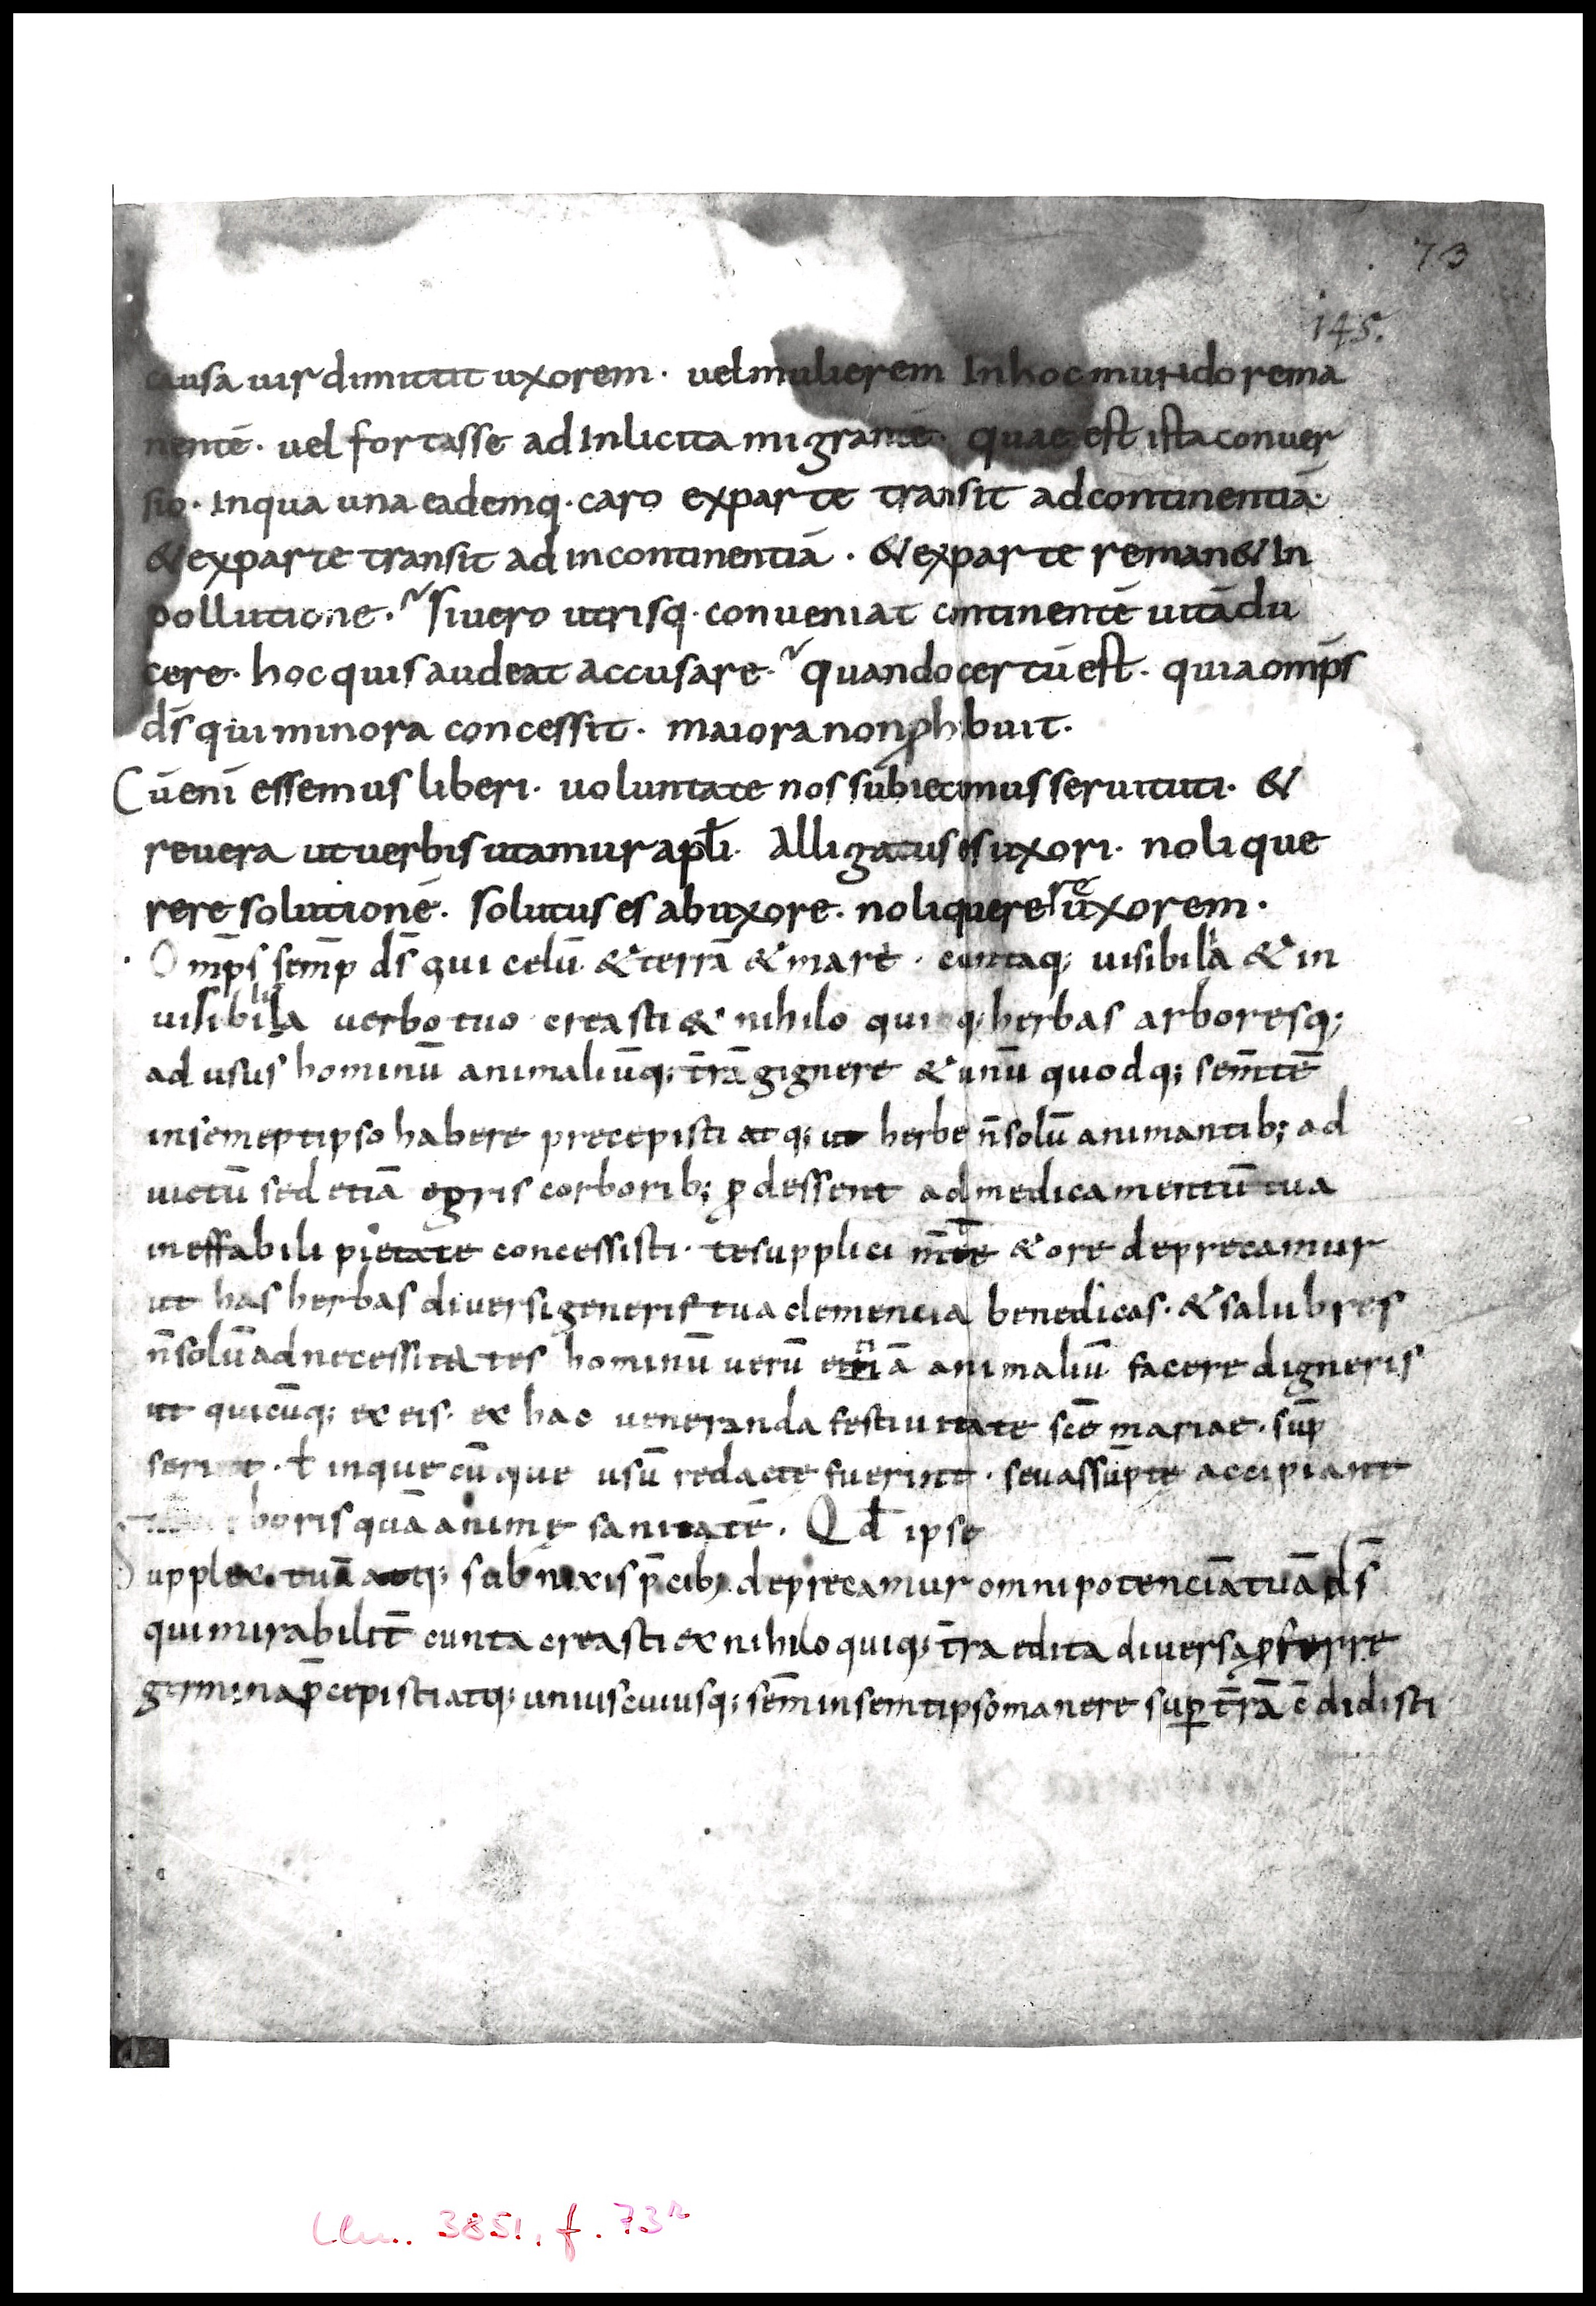 73
145.
causa uir dimittit uxorem · uel mulierem In hoc mundo rema
nentē · uel fortasse ad Inlicita migrantē · quae est ista conuer
sio · In qua una eademq · caro ex parte transit ad continentiā ·
& ex parte transit ad incontinentiā · & ex parte reman& In
pollutione · si uero utrisq · conueniat continentē uitā du
cere · hoc quis audeat accusare · quando certū est · quia omp̄s
ds̄ qui minora concessit · maiora non ꝓhibuit ·
Cū eni essemus liberi · uoluntate nos subiecimus seruituti · &
reuera ut uerbis utamur apłi · Alligatus es uxori · noli que
rere solutionē · solutus es ab uxore · noli querere uxorem ·
Omp̄s semp̄ ds̄ qui celū & terrā & mare · cuntaq; uisibilia & in
uisibilia uerbo tuo creasti & nihilo quiq; herbas arboresq;
ad usus hominū animaliūq; t̄rā gignere & unū quodq; sem̄tē
in semeptipso habere precepisti atq; ut herbe n̄ solū animantib; ad
uictū sed etiā egris corborib; ꝓdessent ad medicamentū tua
ineffabili pietate concessisti · te supplici m̄te & ore deprecamur
ut has herbas diuersi generis tua clemencia benedicas · & salubres
n̄ solū ad necessitates hominū uerū etiā animaliū facere digneris
ut quicūq; ex eis · ex hac ueneranda festiuitate scē mariae · sūp
serint · ł in quecūque usū redacte fuerint · seu assūpte accipiant
boris quā anime sanitatē · Qd̄ ipse
upplex tuā atq; subnixis p̄cib; deprecamur omnipotenciā tuā ds̄
qui mirabilit̄ cunta creasti ex nihilo quiq; t̄ra edita diuersa ꝓferre
germina p̄cepisti atq; unius cuiusq; sem̄ in semtipso manere suꝑ t̄rā c̄didisti
Clm. 3851, f. 73r